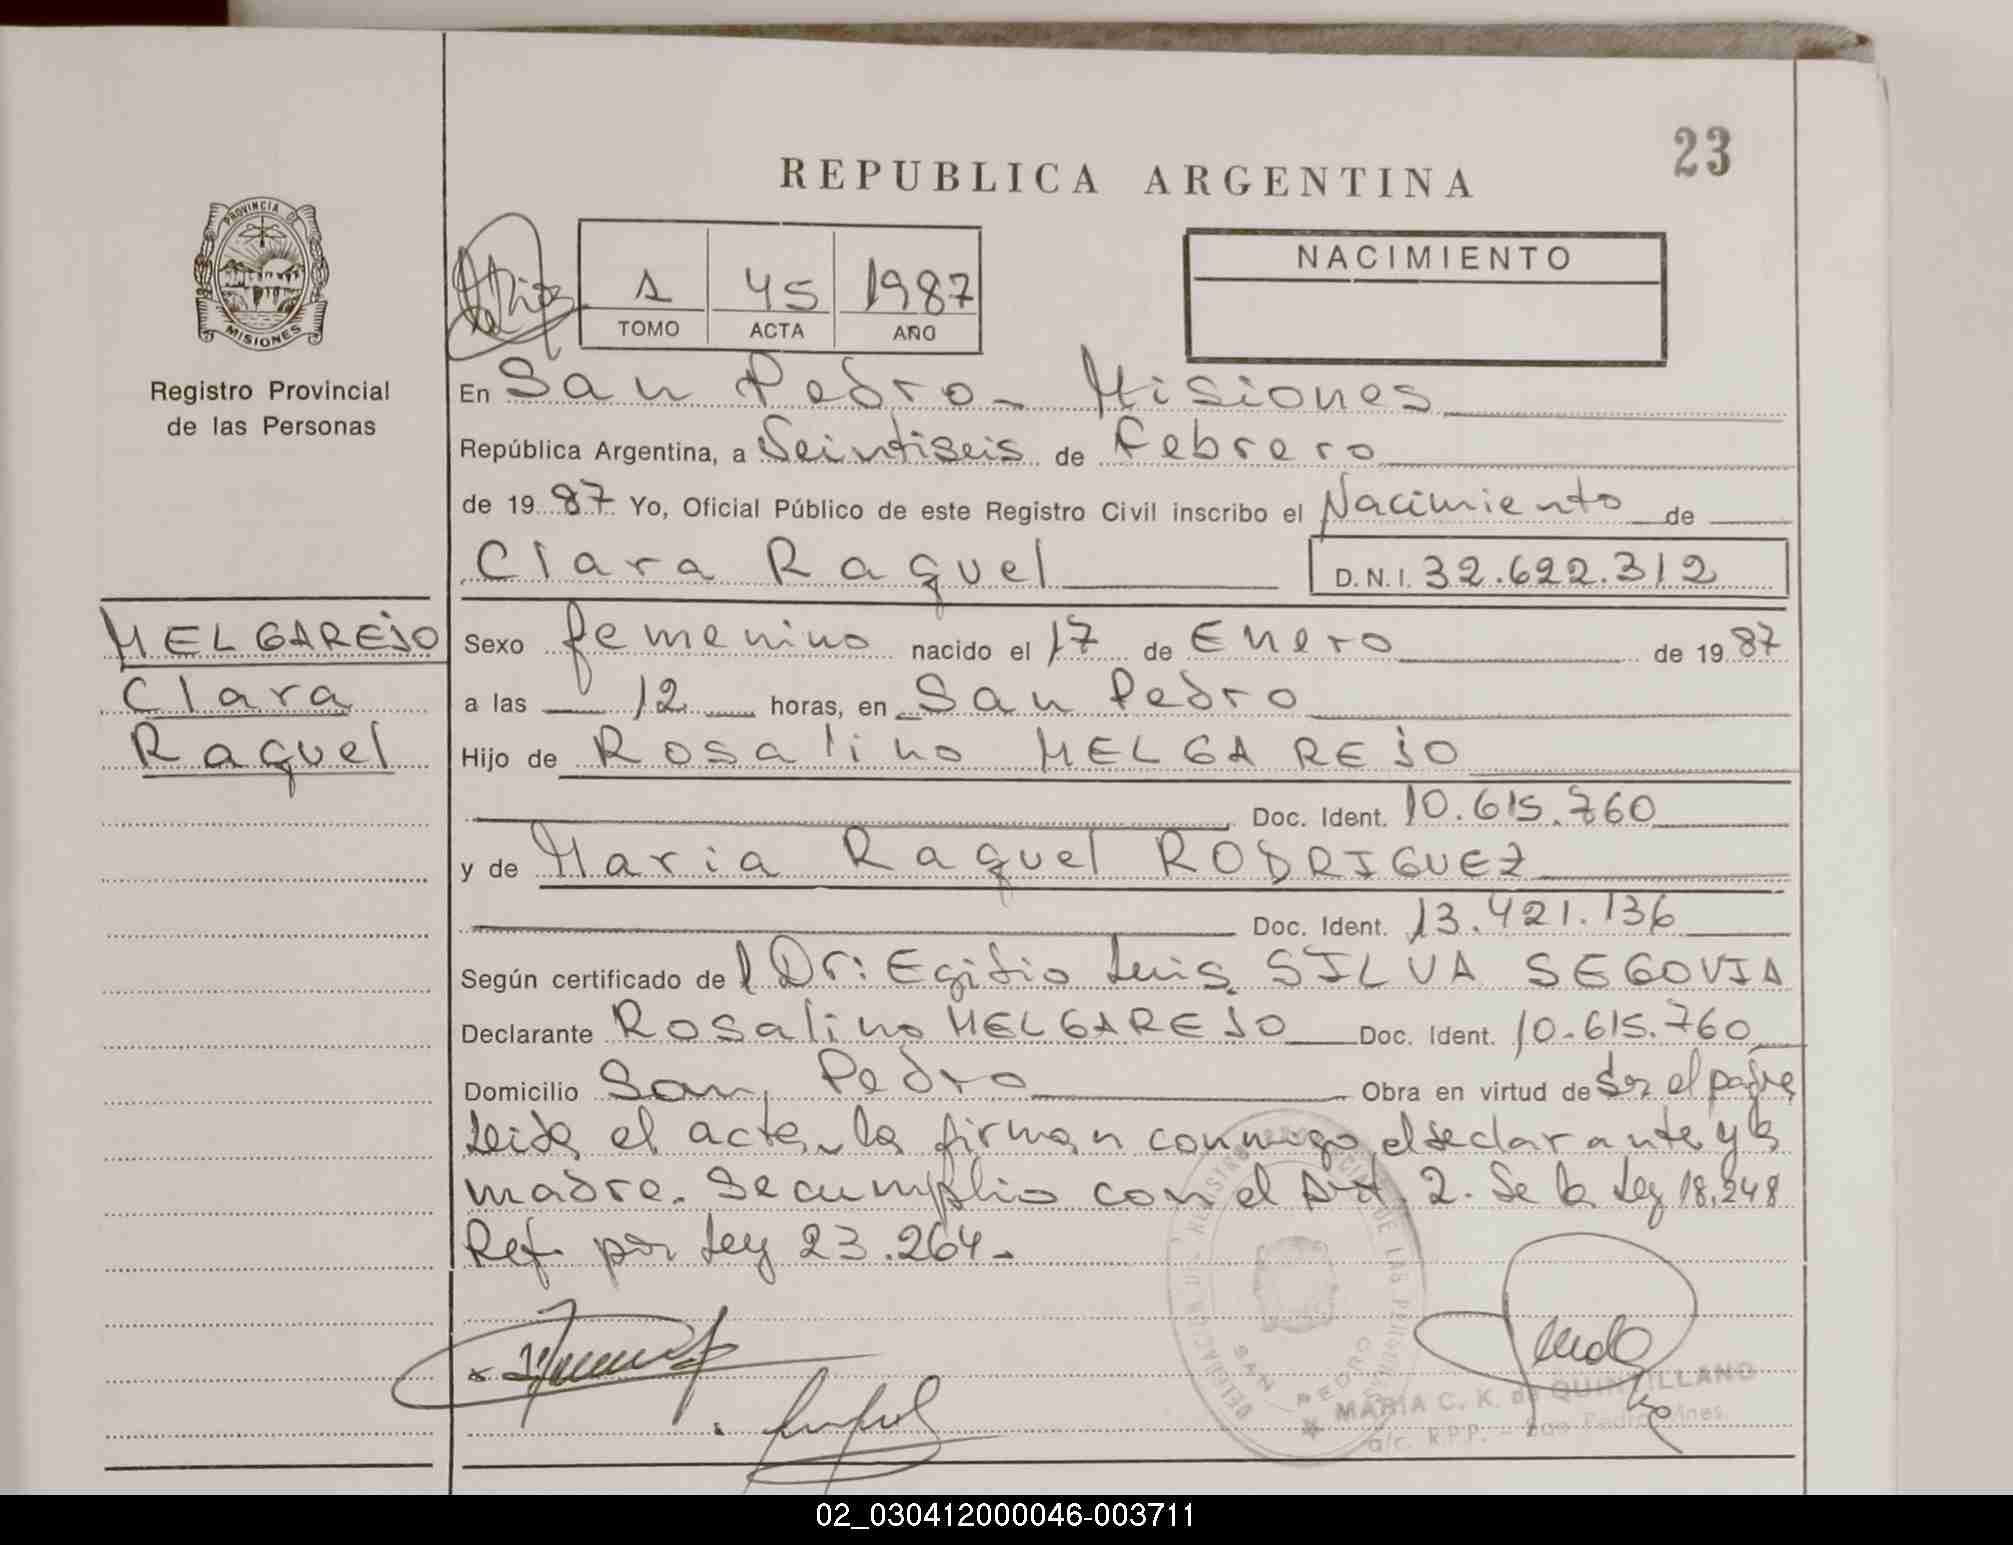 23
REPUBLICA ARGENTINA
PROVINCIA DE
MISIONES
Registro Provincial
de las Personas
1 45 1987
TOMO ACTA AÑO
NACIMIENTO
En San Pedro - Misiones
República Argentina, a Veintiseis de Febrero
de 1987 Yo, Oficial Público de este Registro Civil inscribo el Nacimiento de
Clara Raquel D.N.I. 32.622.312
MELGAREJO
Clara
Raquel
Sexo femenino nacido el 17 de Enero de 1987
a las 12 horas, en San Pedro
Hijo de Rosalino MELGAREJO
Doc. Ident. 10.615.760
y de Maria Raquel RODRIGUEZ
Doc. Ident. 13.421.136
Según certificado del Dr: Egidio Luis SILVA SEGOVIA
Declarante Rosalino MELGAREJO Doc. Ident. 10.615.760
Domicilio San Pedro Obra en virtud de ser el padre
Leida el acta, la firman conmigo, el declarante y la
madre. Se cumplio con el Art. 2. de la Ley 18.248
Ref. por Ley 23.264.-
DELEGACION DEL REGISTRO PROVINCIAL DE LAS PERSONAS
SAN PEDRO
MARIA C. K. de QUINTILLANO
a/c. R.P.P. - San Pedro - Mnes.
02_030412000046-003711